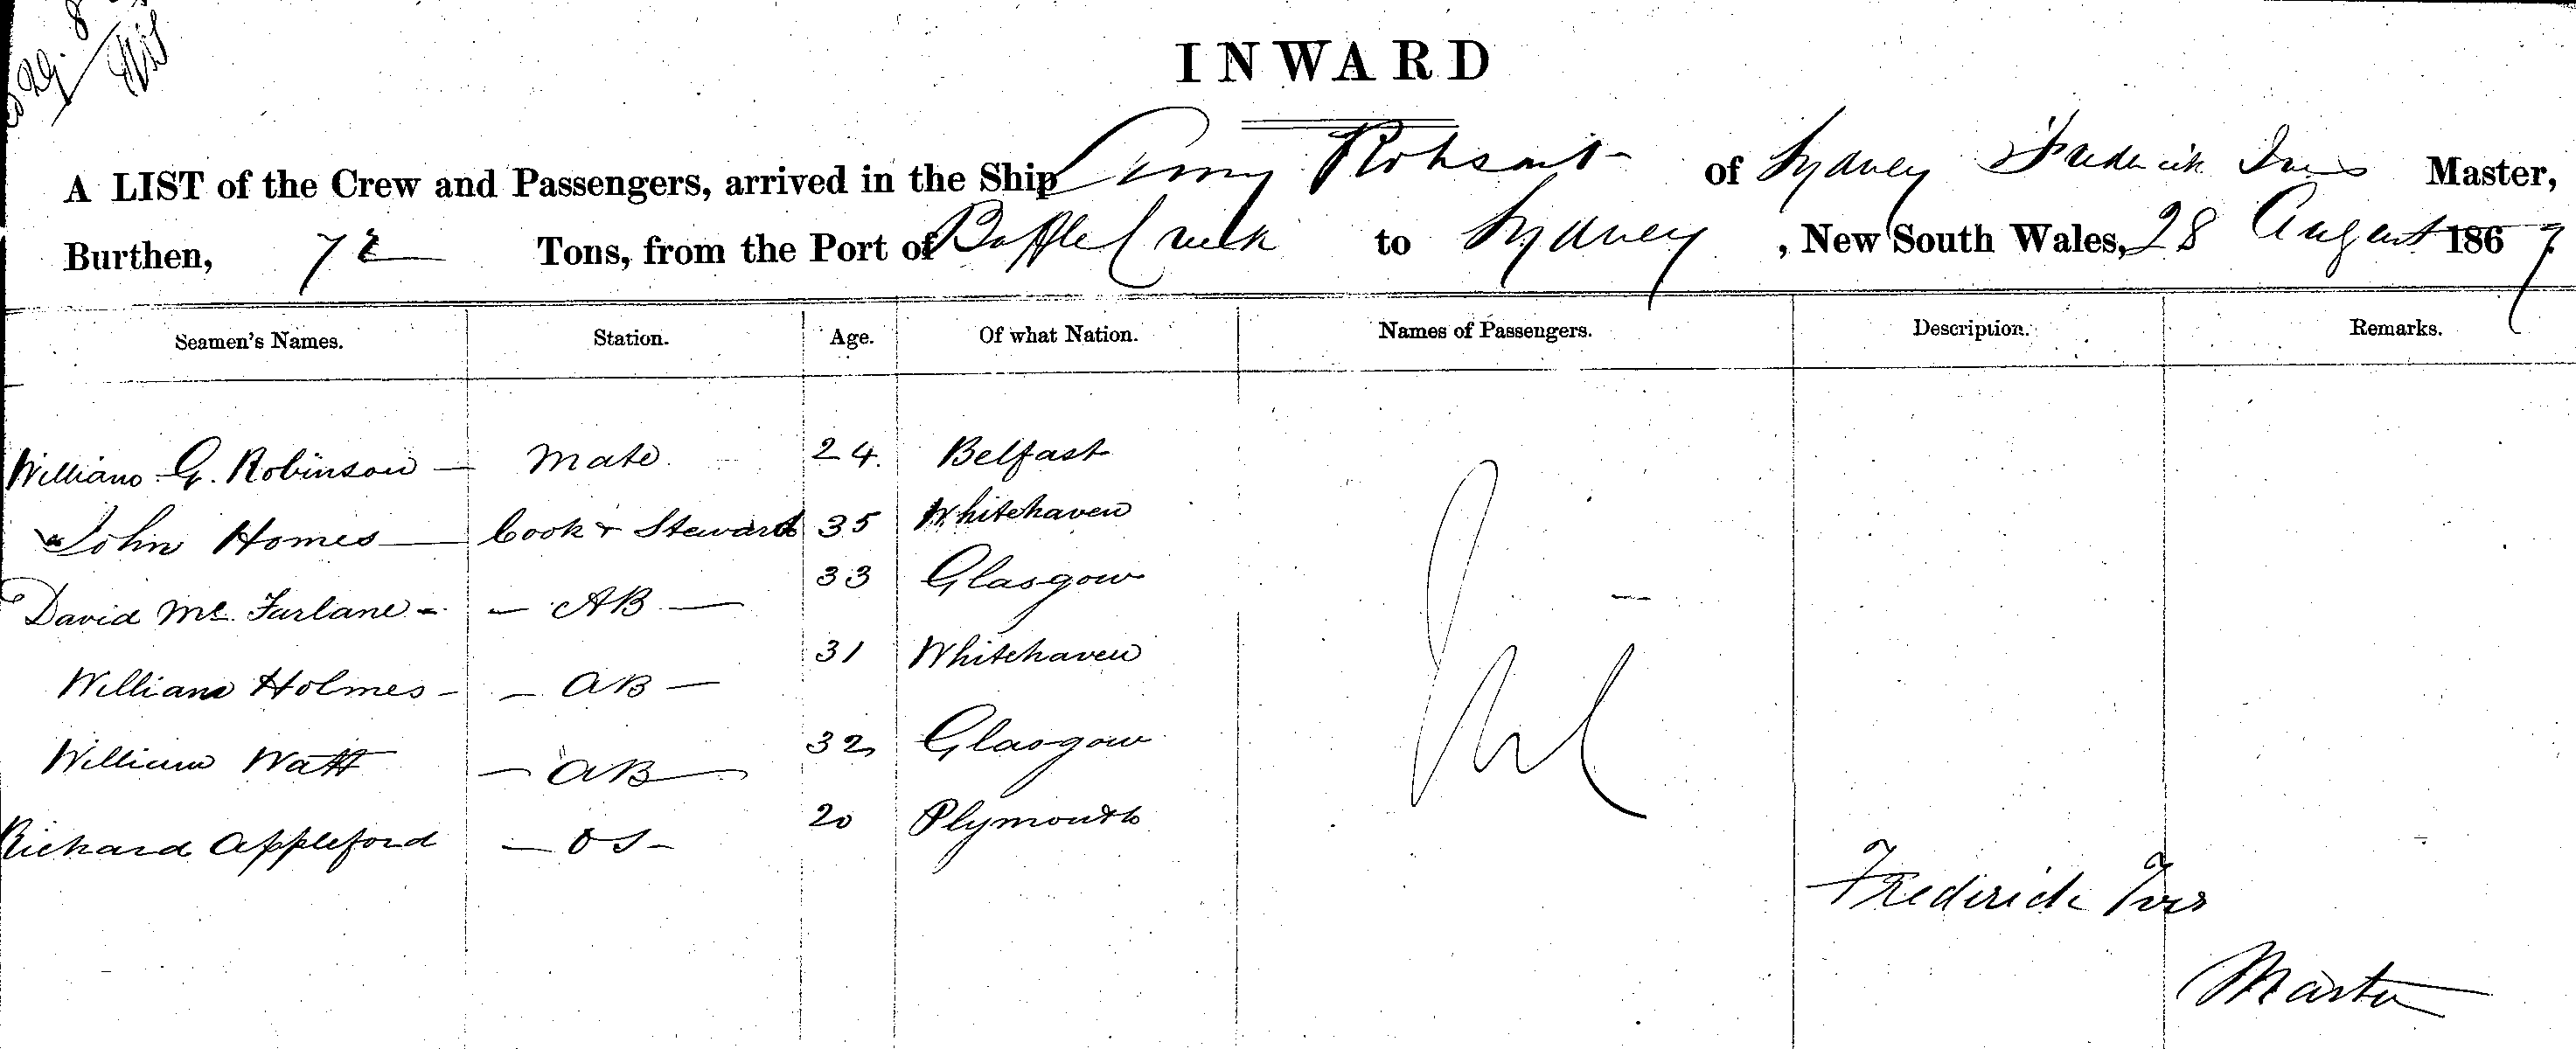 29. 8
INWARD
A LIST of the Crew and Passengers, arrived in the Ship Amy Robsart of Sydney Frederick Ives Master,
Burthen, 72 Tons, from the Port of Baffle Creek to Sydney, New South Wales, 28 August 1867
Seamen's Names. Station. Age. Of what Nation. Names of Passengers. Description. Remarks.
William G. Robinson — Mate 24. Belfast
John Homes — Cook + Steward 35 Whitehaven
David Mc Farlane - — AB — 33 Glasgow
William Holmes - — AB — 31 Whitehaven
William Watt — AB — 32 Glasgow
Richard Appleford — OS — 20 Plymouth
Nil
Frederick Ives
Master